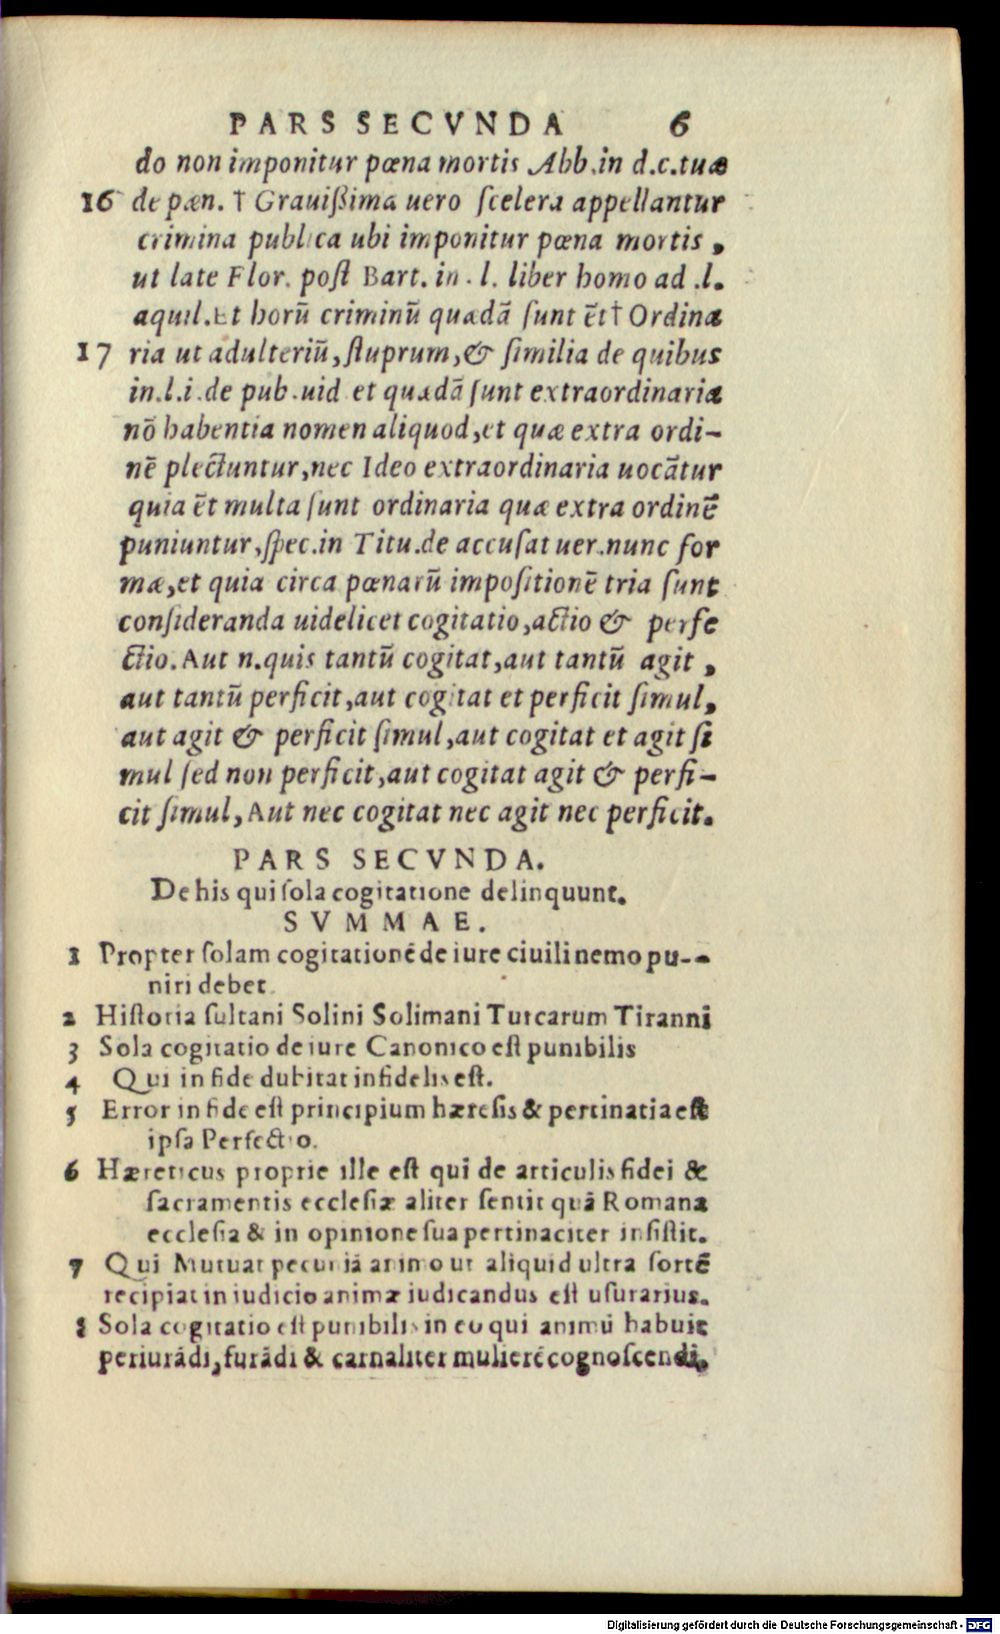 PARS SECVNDA 6
do non imponitur pœna mortis Abb.in d.c.tuæ
16 de pæn. † Grauißima uero ſcelera appellantur
crimina publica ubi imponitur pœna mortis ,
ut late Flor. poſt Bart. in . l. liber homo ad .l.
aquil.Et horū criminū quædā ſunt ēt† Ordina
17 ria ut adulteriū, ſtuprum, & ſimilia de quibus
in.l.i.de pub.uid et quædā ſunt extraordinaria
nō habentia nomen aliquod, et quæ extra ordi-
nē plectuntur, nec Ideo extraordinaria uocātur
quia ēt multa ſunt ordinaria quæ extra ordinē
puniuntur, ſpec.in Titu.de accuſat uer.nunc for
mæ, et quia circa pœnarū impoſitionē tria ſunt
conſideranda uidelicet cogitatio, actio & perfe
ctio. Aut n.quis tantū cogitat, aut tantū agit ,
aut tantū perficit, aut cogitat et perficit ſimul,
aut agit & perficit ſimul, aut cogitat et agit ſi
mul ſed non perficit, aut cogitat agit & perfi-
cit ſimul, Aut nec cogitat nec agit nec perficit.
PARS SECVNDA.
De his qui ſola cogitatione delinquunt.
SVMMAE.
1 Propter ſolam cogitationē de iure ciuili nemo pu--
niri debet.
2 Hiſtoria ſultani Solini Solimani Turcarum Tiranni
3 Sola cogitatio de iure Canonico eſt punibilis
4 Qui in fide dubitat infidelis eſt.
5 Error in fide eſt principium hæreſis & pertinatia eſt
ipſa Perfectio.
6 Hæreticus proprie ille eſt qui de articulis fidei &
ſacramentis eccleſiæ aliter ſentit quā Romana
eccleſia & in opinione ſua pertinaciter inſiſtit.
7 Qui Mutuat pecuniā animo ut aliquid ultra ſortē
recipiat in iudicio animæ iudicandus eſt uſurarius.
8 Sola cogitatio eſt punibilis in eo qui animū habuit
periurādi, furādi & carnaliter mulierē cognoſcendi.
Digitalisierung gefördert durch die Deutsche Forschungsgemeinschaft - DFG